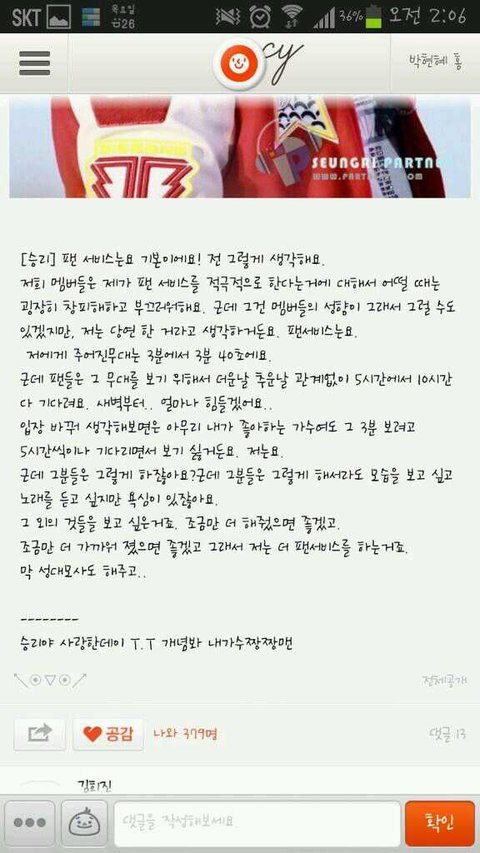 SKT
목요일
26
36%
오전 2:06
cy
박현혜 홍
SEUNGRI PARTNE
WWW.PARTN
.COM
[승리] 팬 서비스는요 기본이에요! 전 그렇게 생각해요.
저희 멤버들은 제가 팬 서비스를 적극적으로 한다는거에 대해서 어떨 때는
굉장히 창피해하고 부끄러워해요. 근데 그건 멤버들의 성향이 그래서 그럴 수도
있겠지만, 저는 당연 한 거라고 생각하거든요. 팬서비스는요.
저에게 주어진무대는 3분에서 3분 40초에요.
근데 팬들은 그 무대를 보기 위해서 더운날 추운날 관계없이 5시간에서 10시간
다 기다려요. 새벽부터.. 얼마나 힘들겠어요..
입장 바꿔 생각해보면은 아무리 내가 좋아하는 가수여도 그 3분 보려고
5시간씩이나 기다리면서 보기 싫거든요. 저는요.
근데 그분들은 그렇게 하잖아요?근데 그분들은 그렇게 해서라도 모습을 보고 싶고
노래를 듣고 싶지만 욕심이 있잖아요.
그 외의 것들을 보고 싶은거죠. 조금만 더 해줬으면 좋겠고.
조금만 더 가까워 졌으면 좋겠고 그래서 저는 더 팬서비스를 하는거죠.
막 성대모사도 해주고..
--------
승리야 사랑한데이 T.T 개념봐 내가수짱짱맨
＼⊙▽⊙／
전체공개
공감
나와 379명
댓글 13
김희진
댓글을 작성해보세요
확인